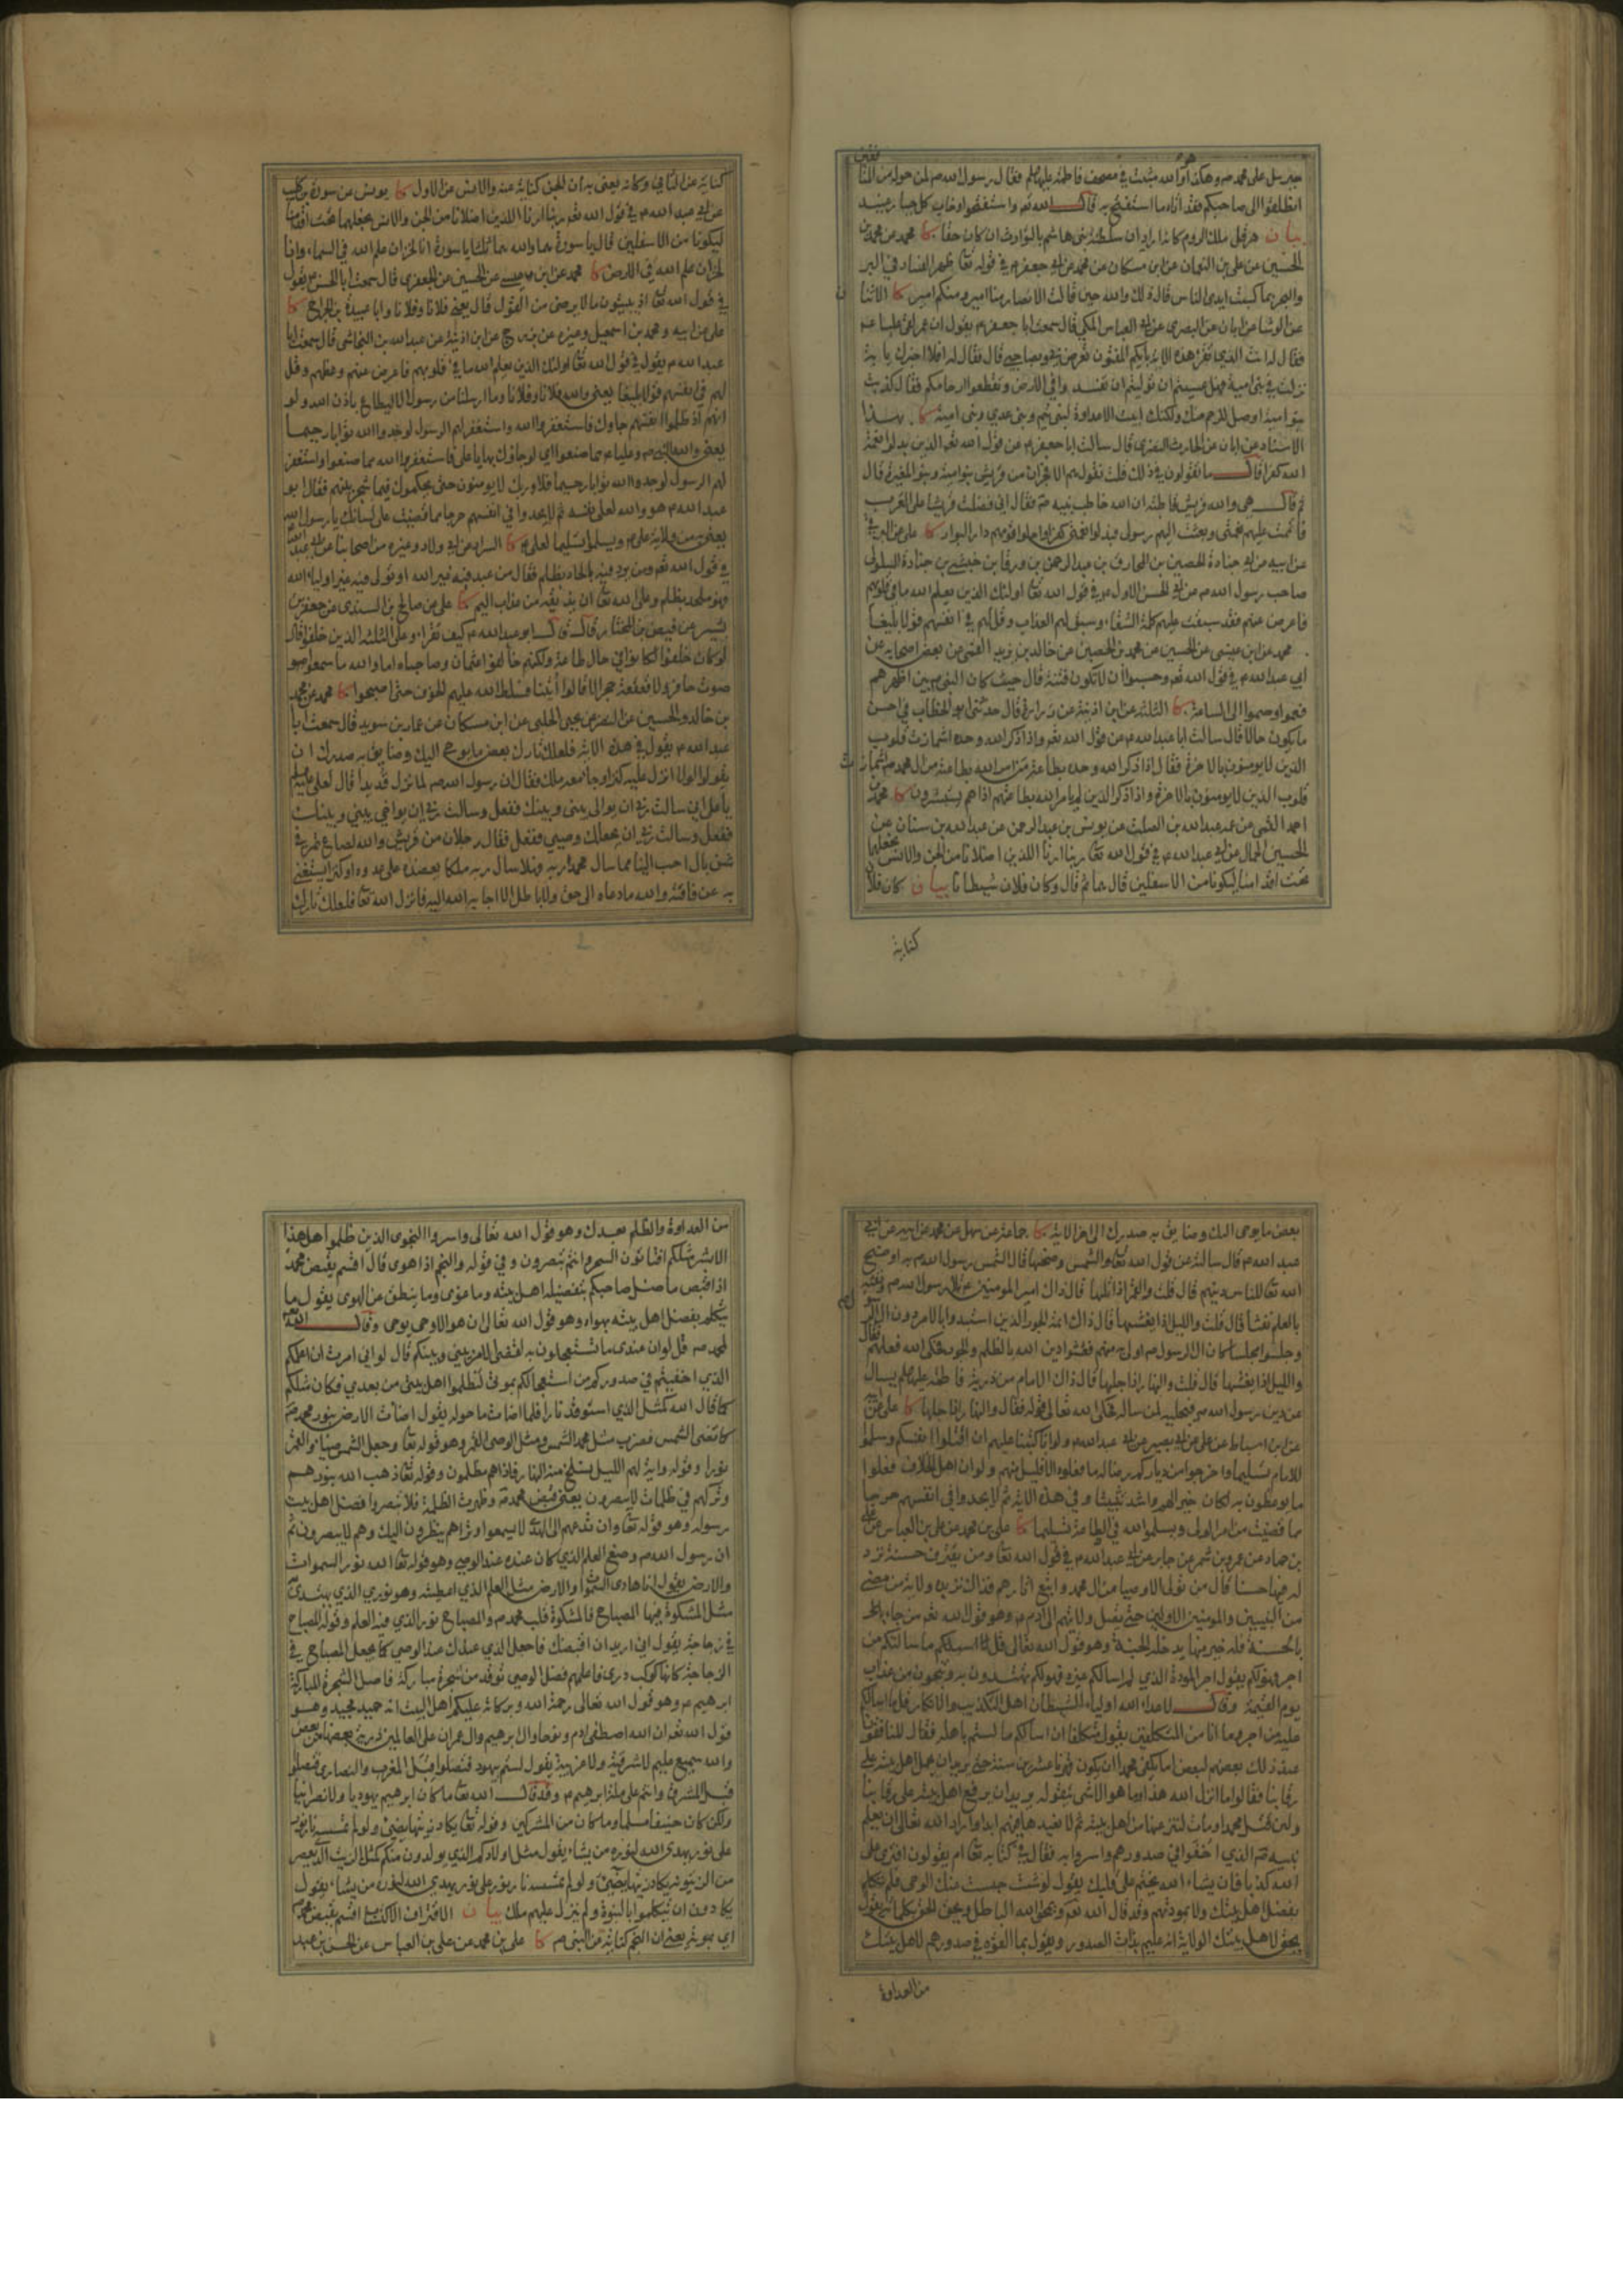 جبرئيل على محمد ص وهكذا هو والله مثبت في مصحف فاطمة عليها فقال رسول الله ص لمن حوله من المنافقين
انطلقوا الى صاحبكم فقد اتاه ما استفتح به قال الله تع واستفتحوا وخاب كل جبار عنيد
بيان هرقل ملك الروم كانه اراد ان سلطنة بني هاشم بالتوارث ان كان حقا كا محمد عن محمد بن
الحسين عن علي بن النعمان عن ابن مسكان عن محمد عن ابي جعفر ع في قوله تعا ظهر الفساد في البر
والبحر بما كسبت ايدي الناس قال ذلك والله حين قالت الانصار منا امير ومنكم امير كا الاثنان
عن الوشا عن ابان عن البصري عن ابي العباس المكي قال سمعت ابا جعفر ع يقول ان عمر لقي عليا ع
فقال له انت الذي تقرأ هذه الاية بايكم المفتون تعرض بي وبصاحبي قال فقال له افلا اخبرك باية
نزلت في بني امية فهل عسيتم ان توليتم ان تفسدوا في الارض وتقطعوا ارحامكم فقال كذبت
بنو امية اوصل للرحم منك ولكنك ابيت الا عداوة لبني تيم وبني عدي وبني امية كا بهذا
الاسناد عن ابان عن الحارث النصري قال سالت ابا جعفر ع عن قول الله تع الذين بدلوا نعمة
الله كفرا قال ما تقولون في ذلك قلت نقول هم الافجران من قريش بنو امية وبنو المغيرة قال
ثم قال هي والله قريش قاطبة ان الله خاطب نبيه ص فقال اني فضلت قريشا على العرب
واتممت عليهم نعمتي وبعثت اليهم رسولي فبدلوا نعمتي كفرا واحلوا قومهم دار البوار كا علي عن البرقي
عن ابيه عن ابي جنادة الحصين بن المخارق بن عبد الرحمن بن ورقا بن حبشي بن جنادة السلولي
صاحب رسول الله ص عن ابي الحسن الاول ع في قول الله تعا اولئك الذين يعلم الله ما في قلوبهم
فاعرض عنهم فقد سبقت عليهم كلمة الشقاء وسبق لهم العذاب وقل لهم في انفسهم قولا بليغا
محمد عن ابن عيسى عن الحسين عن محمد بن الحصين عن خالد بن يزيد القمي عن بعض اصحابه عن
ابي عبد الله ع في قول الله تع وحسبوا ان لا تكون فتنة قال حيث كان النبي ص بين اظهرهم
فعموا وصموا الى الساعة كا الثلثة عن ابن اذينة عن زرارة قال حدثني ابو الخطاب في احسن
ما يكون حالا قال سالت ابا عبد الله ع عن قول الله تع واذا ذكر الله وحده اشمازت قلوب
الذين لا يؤمنون بالاخرة فقال اذا ذكر الله وحده بطاعة من امر الله بطاعته من ال محمد ص اشمازت
قلوب الذين لا يؤمنون بالاخرة واذا ذكر الذين لم يامر الله بطاعتهم اذا هم يستبشرون كا محمد بن
احمد القمي عن عمه عبد الله بن الصلت عن يونس بن عبد الرحمن عن عبد الله بن سنان عن
الحسين الجمال عن ابي عبد الله ع في قول الله تعا ربنا ارنا اللذين اضلانا من الجن والانس نجعلهما
تحت اقدامنا ليكونا من الاسفلين قال هما ثم قال وكان فلان شيطانا بيان كان فلانا
كناية
كناية عن الثاني وكانه يعني به ان الجن كناية عنه والانس عن الاول كا يونس عن سورة بن كليب
عن ابي عبد الله ع في قول الله تع ربنا ارنا اللذين اضلانا من الجن والانس نجعلهما تحت اقدامنا
ليكونا من الاسفلين قال يا سورة هما والله هما ثلثا يا سورة انا لخزان علم الله في السماء وانا
لخزان علم الله في الارض كا محمد عن ابن عيسى عن الحسين عن الجعفري قال سمعت ابا الحسن ع يقول
في قول الله تعا اذ يبيتون ما لا يرضى من القول قال يعني فلانا وفلانا وابا عبيدة بن الجراح كا
علي عن ابيه ومحمد بن اسمعيل وغيره عن بزرج عن ابن اذينة عن عبد الله بن النجاشي قال سمعت ابا
عبد الله ع يقول في قول الله تعا اولئك الذين يعلم الله ما في قلوبهم فاعرض عنهم وعظهم وقل
لهم في انفسهم قولا بليغا يعني والله فلانا وفلانا وما ارسلنا من رسول الا ليطاع باذن الله ولو
انهم اذ ظلموا انفسهم جاوك فاستغفروا الله واستغفر لهم الرسول لوجدوا الله توابا رحيما
يعني والله النبي ص وعليا ع مما صنعوا اي لو جاؤك بها يا علي فاستغفروا الله مما صنعوا واستغفر
لهم الرسول لوجدوا الله توابا رحيما فلا وربك لا يومنون حتى يحكموك فيما شجر بينهم فقال ابو
عبد الله ع هو والله لعلي بعينه ثم لا يجدوا في انفسهم حرجا مما قضيت على لسانك يا رسول الله
يعني به من ولاية علي ع ويسلموا تسليما لعلي ع كا السراد عن ابي ولاد وغيره من اصحابنا عن ابي عبد الله
في قول الله تع ومن يرد فيه بالحاد بظلم فقال من عبد فيه غير الله او تولى فيه غير اولياء الله
فهو ملحد بظلم وعلى الله تعا ان يذيقه من عذاب اليم كا علي عن صالح بن السندي عن جعفر بن
بشير عن فيض بن المختار قال قال ابو عبد الله ع كيف تقرا وعلى الثلثة الذين خلفوا قال
لو كان خلفوا لكانوا في حال طاعة ولكنهم خالفوا عثمان وصاحباه اما والله ما سمعوا صو
صوت حافر ولا قعقعة حجر الا قالوا أتينا فسلط الله عليهم الخوف حتى اصبحوا كا محمد عن محمد
بن خالد والحسين عن النضر عن يحيى الحلبي عن ابن مسكان عن عمار بن سويد قال سمعت ابا
عبد الله ع يقول في هذه الاية فلعلك تارك بعض ما يوحى اليك وضايق به صدرك ان
يقولوا لولا انزل عليه كنز او جا معه ملك فقال ان رسول الله ص لما نزل قديدا قال لعلي ع
يا علي اني سالت ربي ان يوالي بيني وبينك ففعل وسالت ربي ان يواخي بيني وبينك
ففعل وسالت ربي ان يجعلك وصيي ففعل فقال رجلان من قريش والله لصاع تمر في
شن بال احب الينا مما سال محمد ربه فهلا سال ربه ملكا يعضده على عدوه او كنزا يستغني
به عن فاقته والله ما دعاه الى حق ولا باطل الا اجابه الله اليه فانزل الله تعا فلعلك تارك
بعض ما يوحى اليك وضايق به صدرك الى اخر الاية كا جماعة عن سهل عن محمد عن ابيه عن ابي
عبد الله ع قال سالته عن قول الله تعا والشمس وضحيها قال الشمس رسول الله ص به اوضح
الله تعا للناس دينهم قال قلت والقمر اذا تليها قال ذاك امير المومنين ع تلا رسول الله ص ونفثه
بالعلم نفثا قال قلت والليل اذا يغشيها قال ذاك ائمة الجور الذين استبدوا بالامر دون ال الرسول
وجلسوا مجلسا كان ال الرسول ص اولى به منهم فغشوا دين الله بالظلم والجور فحكى الله فعلهم فقال
والليل اذا يغشيها قال قلت والنهار اذا جليها قال ذاك الامام من ذرية فاطمة عليها يسال
عن دين رسول الله ص فيجليه لمن ساله فحكى الله تعالى قوله فقال والنهار اذا جليها كا علي عن
عن ابن اسباط عن علي عن ابي بصير عن ابي عبد الله ع ولو انا كتبنا عليهم ان اقتلوا انفسكم وسلموا
للامام تسليما او اخرجوا من دياركم رضا له ما فعلوه الا قليل منهم ولو ان اهل الخلاف فعلوا
ما يوعظون به لكان خيرا لهم واشد تثبيتا وفي هذه الاية ثم لا يجدوا في انفسهم حرجا
مما قضيت من امر الوالي ويسلموا لله في الطاعة تسليما كا علي بن محمد عن علي بن العباس عن علي
بن حماد عن عمرو بن شمر عن جابر عن ابي عبد الله ع في قول الله تعا ومن يقترف حسنة نزد
له فيها حسنا قال من تولى الاوصيا من ال محمد واتبع اثارهم فذاك نزيده ولاية من مضى
من النبيين والمومنين الاولين حتى يصل ولايتهم الى ادم ع وهو قول الله تع من جاء
بالحسنة فله خير منها يدخله الجنة وهو قول الله تعالى قل ما اسالكم ما سالتكم من
اجر فهو لكم يقول اجر المودة الذي لم اسالكم غيره فهو لكم تهتدون به وتنجون من عذاب
يوم القيمة وقال لاعداء الله اولياء الشيطان اهل التكذيب والانكار قل ما اسالكم
عليه من اجر وما انا من المتكلفين يقول متكلفا ان اسالكم ما لستم باهله فقال المنافقون
عند ذلك بعضهم لبعض اما يكفي محمدا ان يكون قهرنا عشرين سنة حتى يريد ان يحمل اهل بيته على
رقابنا فقالوا ما انزل الله هذا وما هو الا شئ يتقوله يريد ان يرفع اهل بيته على رقابنا
ولئن قتل محمد او مات لننزعنها من اهل بيته ثم لا نعيدها فيهم ابدا واراد الله تعالى ان يعلم
نبيه ص الذي اخفوا في صدورهم واسروا به فقال في كتابه تعا ام يقولون افترى على
الله كذبا فان يشاء الله يختم على قلبك يقول لو شئت حبست عنك الوحي فلم تتكلم
بفضل اهل بيتك ولا بمودتهم وقد قال الله تع ويمحو الله الباطل ويحق الحق بكلماته يقول
الحق لاهل بيتك الولاية انه عليم بذات الصدور ويقول بما القوه في صدورهم لاهل بيتك
من العداوة
من العداوة والظلم بعدك وهو قول الله تعالى واسروا النجوى الذين ظلموا هل هذا
الا بشر مثلكم افتاتون السحر وانتم تبصرون وفي قوله والنجم اذا هوى قال اقسم بقبض محمد
اذا قبض ما ضل صاحبكم بتفضيله اهل بيته وما غوى وما ينطق عن الهوى يقول ما
يتكلم بفضل اهل بيته بهواه وهو قول الله تعالى ان هو الا وحي يوحى وقال الله
لمحمد ص قل لو ان عندي ما تستعجلون به لقضي الامر بيني وبينكم قال لو اني امرت ان اعلمكم
الذي اخفيتم في صدوركم من استعجالكم بموتي لتظلموا اهل بيتي من بعدي فكان مثلكم
كما قال الله كمثل الذي استوقد نارا فلما اضات ما حوله يقول اضات الارض بنور محمد ص
كما تضئ الشمس فضرب مثل محمد الشمس ومثل الوصي القمر وهو قوله تعا وجعل الشمس ضياء والقمر
نورا وقوله واية لهم الليل نسلخ منه النهار فاذا هم مظلمون وقوله تعا ذهب الله بنورهم
وتركهم في ظلمات لا يبصرون يعني قبض محمد ص وظهرت الظلمة فلا تبصروا فضل اهل بيت
رسوله وهو قوله تعا وان تدعهم الى الهدى لا يسمعوا وتراهم ينظرون اليك وهم لا يبصرون ثم
ان رسول الله ص وضع العلم الذي كان عنده عند الوصي وهو قوله تعا الله نور السموات
والارض يقول انا هادي السموات والارض مثل العلم الذي اعطيته وهو نوري الذي يهتدى به
مثل المشكوة فيها المصباح فالمشكوة قلب محمد ص والمصباح نوره الذي فيه العلم وقوله المصباح
في زجاجة يقول اني اريد ان اقبضك فاجعل الذي عندك عند الوصي كما يجعل المصباح في
الزجاجة كانها كوكب دري فاعلمهم فضل الوصي توقد من شجرة مباركة فاصل الشجرة المباركة
ابرهيم ع وهو قول الله تعالى رحمة الله وبركاته عليكم اهل البيت انه حميد مجيد وهو
قول الله تع ان الله اصطفى ادم ونوحا وال ابرهيم وال عمران على العالمين ذرية بعضها من بعض
والله سميع عليم لا شرقية ولا غربية يقول لستم بيهود فتصلوا قبل المغرب ولا نصارى فتصلوا
قبل المشرق وانتم على ملة ابرهيم ع وقد قال الله تعا ما كان ابرهيم يهوديا ولا نصرانيا
ولكن كان حنيفا مسلما وما كان من المشركين وقوله تعا يكاد زيتها يضئ ولو لم تمسسه نار نور
على نور يهدي الله لنوره من يشاء يقول مثل اولادكم الذي يولدون منكم كمثل الزيت الذي يعصر
من الزيتون يكاد زيتها يضئ ولو لم تمسسه نار نور على نور يهدي الله لنوره من يشاء يقول
يكادون ان يتكلموا بالنبوة ولو لم ينزل عليهم ملك بيان الاقتراف الاكتساب اقسم بقبض محمد ص
اي بموته يعني ان النجم كناية عن النبي ص كا علي بن محمد عن علي بن العباس عن الحسن بن عبد